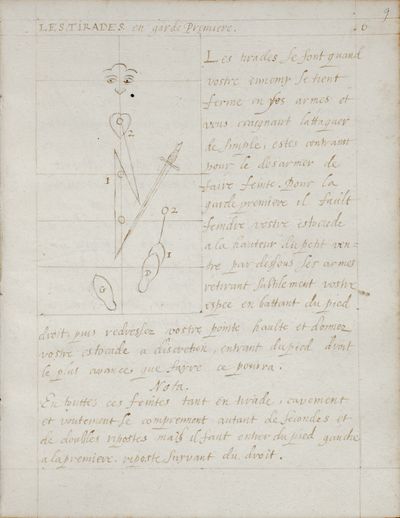 9
LES TIRADES en garde Premiere.
6
Les tirades se font quand
vostre ennemy se tient
ferme en ses armes et
vous craignant l'attaquer
de simple, estes contraint
pour le desarmer de
faire feinte. Pour la
garde premiere il fault
feindre vostre estocade
a la hauteur du petit ven-
tre par dessous ses armes
retirant subtilement vostre
espee en battant du pied
droit, puis redressez vostre pointe haulte et donnez
vostre estocade a discretion, entrant du pied droit
le plus avance que fayre ce pourra.
Nota.
En touttes ces feintes tant en tirade, cavement
et voutement se comprennent autant de secondes et
de doubles ripostes mais il faut entrer du pied gauche
a la premiere riposte suivant du droit.
2
1
2
1
G
D